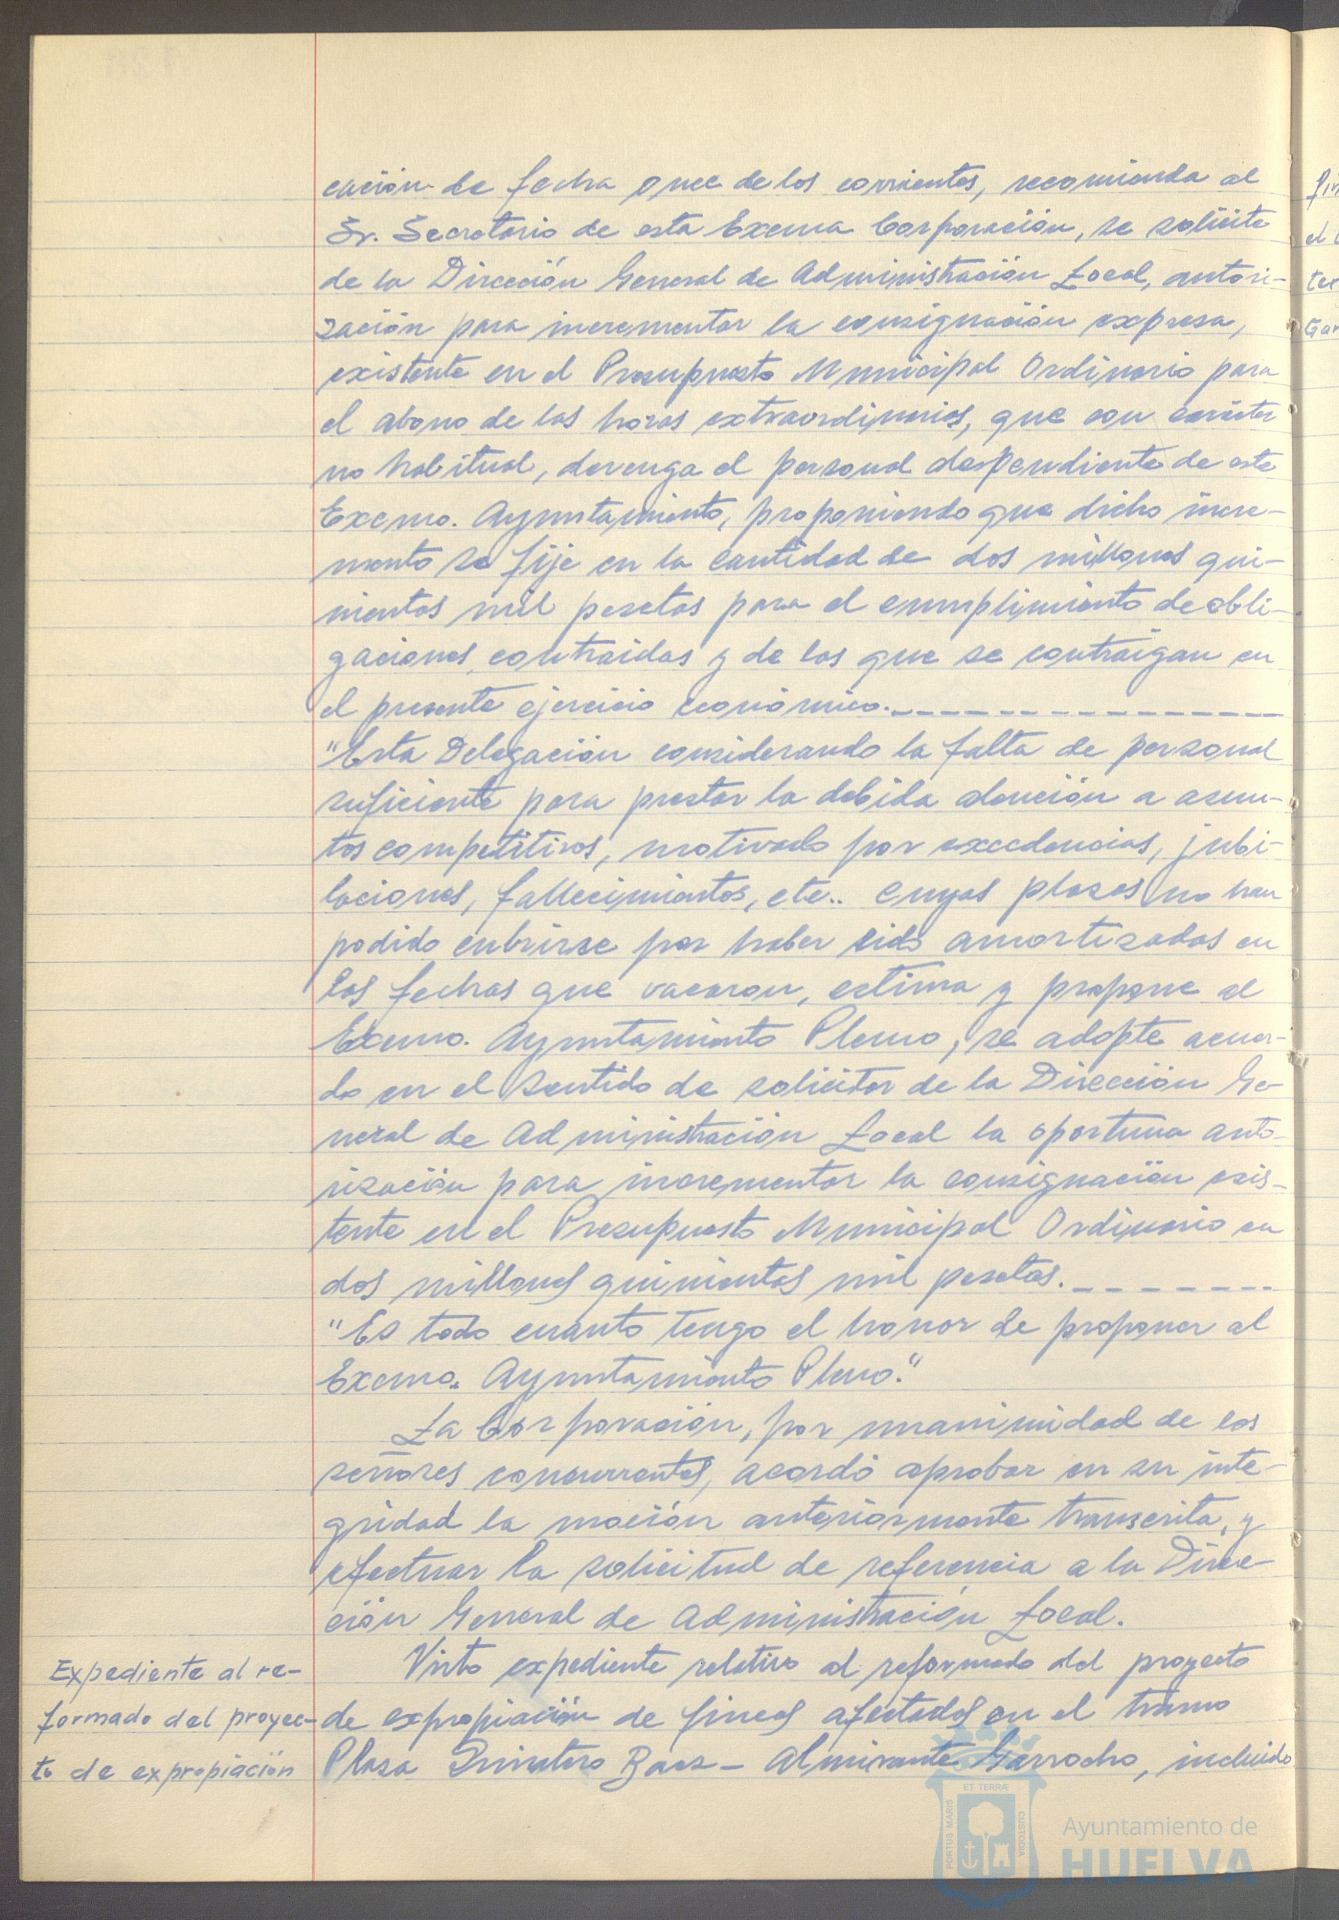 cación de fecha once de los corrientes, recomienda al
Sr. Secretario de esta Excma Corporación, se solicite
de la Dirección General de Administración Local, autori-
zación para incrementar la consignación expresa,
existente en el Presupuesto Municipal Ordinario para
el abono de las horas extraordinarias, que con carácter
no habitual, devenga el personal despendiente de este
Excmo. Ayuntamiento, proponiendo que dicho incre-
mento se fije en la cantidad de dos millones qui-
nientas mil pesetas para el cumplimiento de obli-
gaciones contraidas y de las que se contraigan en
el presente ejercicio económico.
"Esta Delegación considerando la falta de personal
suficiente para prestar la debida atención a asun-
tos competitivos, motivado por excedencias, jubi-
laciones, fallecimientos, etc.. cuyas plazas no han
podido cubrirse por haber sido amortizadas en
las fechas que vacaron, estima y propone al
Excmo. Ayuntamiento Pleno, se adopte acuer-
do en el sentido de solicitar de la Dirección Ge-
neral de Administración Local la oportuna auto-
rización para incrementar la consignación exis-
tente en el Presupuesto Municipal Ordinario en
dos millones quinientas mil pesetas.
"Es todo cuanto tengo el honor de proponer al
Excmo. Ayuntamiento Pleno."
La Corporación, por unanimidad de los
señores concurrentes, acordó aprobar en su inte-
gridad la moción anteriormente transcrita, y
efectuar la solicitud de referencia a la Direc-
ción General de Administración Local.
Expediente al re-
formado del proyec-
to de expropiación
Visto expediente relativo al reformado del proyecto
de expropiación de fincas afectadas en el tramo
Plaza Quintero Baez - Almirante Garrocho, incluido
PORTUS MARIS ET TERRÆ CUSTODIA
Ayuntamiento de
HUELVA